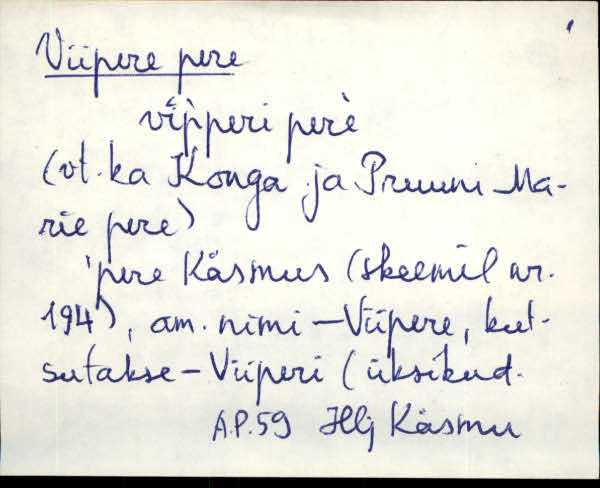 Viipere pere
vipperi perè
(vt. ka Konga ja Pruuni Ma-
rie pere)
'pere Käsmus (skeemil nr.
194), am. nimi – Viipere, kut-
sutakse – Viiperi (üksikud.
A.P.59 Hlj Käsmu